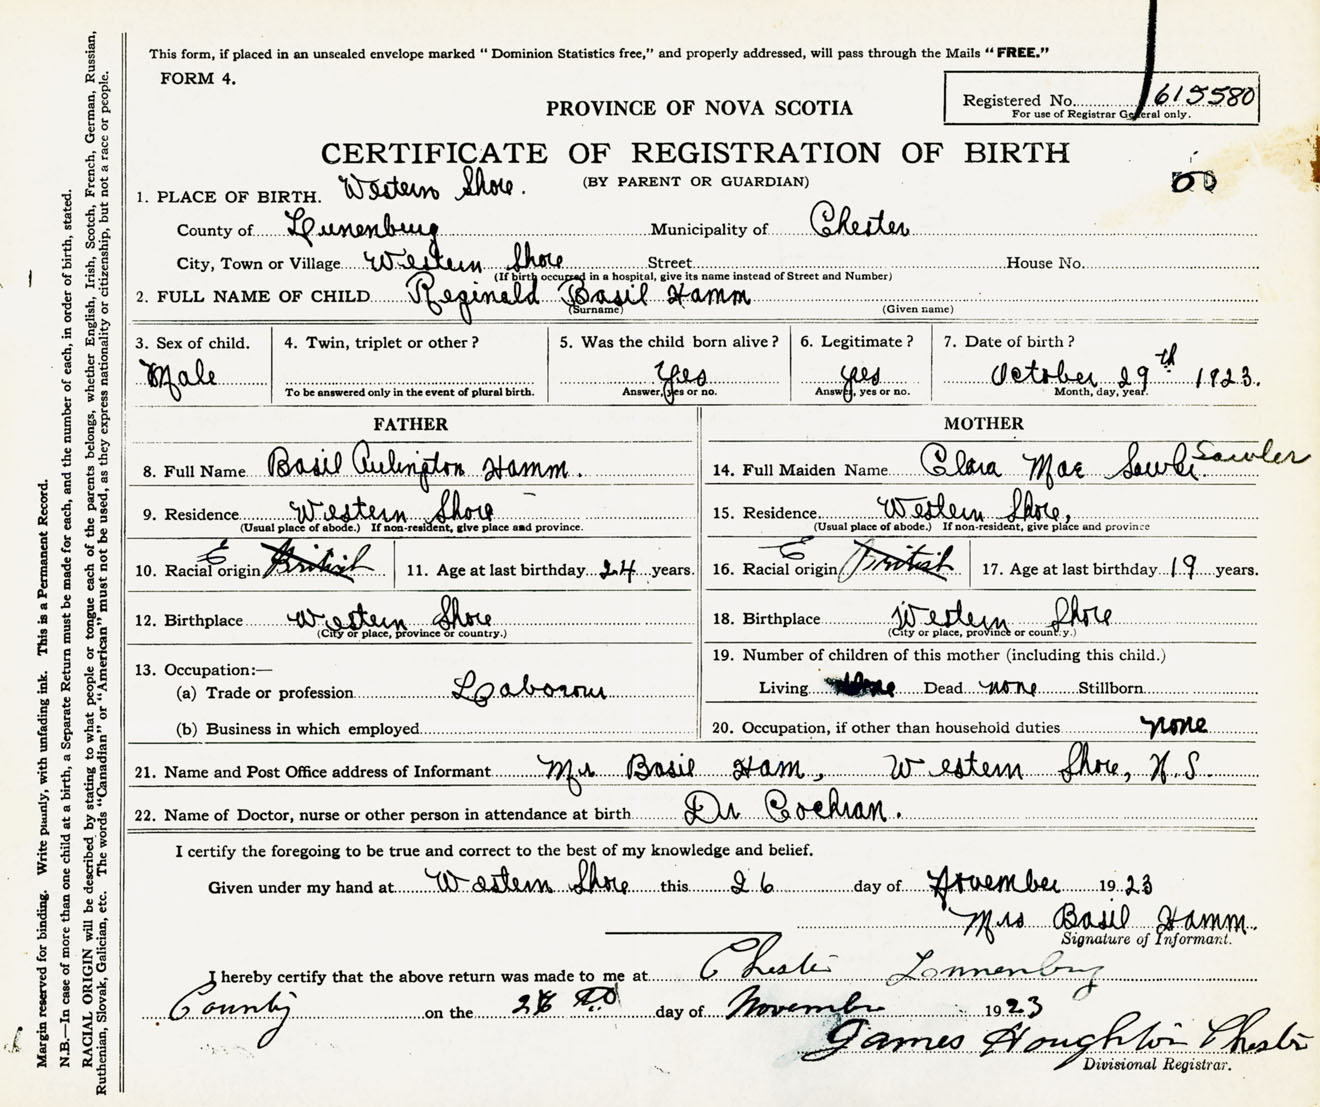 This form, if placed in an unsealed envelope marked "Dominion Statistics free," and properly addressed, will pass through the Mails "FREE."
FORM 4.
Registered No. 615580
For use of Registrar General only.
PROVINCE OF NOVA SCOTIA
CERTIFICATE OF REGISTRATION OF BIRTH
(BY PARENT OR GUARDIAN)
1. PLACE OF BIRTH. Western Shore.
County of Lunenburg Municipality of Chester
City, Town or Village Western Shore Street House No.
(If birth occurred in a hospital, give its name instead of Street and Number)
2. FULL NAME OF CHILD Reginald Basil Hamm
(Surname) (Given name)
3. Sex of child. Male
4. Twin, triplet or other?
To be answered only in the event of plural birth.
5. Was the child born alive? Yes
Answer, yes or no.
6. Legitimate? yes
Answer, yes or no.
7. Date of birth? October 29th 1923.
Month, day, year.
FATHER
8. Full Name Basil Arlington Hamm.
9. Residence Western Shore
(Usual place of abode.) If non-resident, give place and province.
10. Racial origin E British
11. Age at last birthday 24 years.
12. Birthplace Western Shore
(City or place, province or country.)
13. Occupation:—
(a) Trade or profession Labourer
(b) Business in which employed
MOTHER
14. Full Maiden Name Clara Mae Sawler
15. Residence Western Shore,
(Usual place of abode.) If non-resident, give place and province
16. Racial origin E British
17. Age at last birthday 19 years.
18. Birthplace Western Shore
(City or place, province or country.)
19. Number of children of this mother (including this child.)
Living Dead none Stillborn
20. Occupation, if other than household duties none
21. Name and Post Office address of Informant Mrs Basil Ham, Western Shore, N.S.
22. Name of Doctor, nurse or other person in attendance at birth Dr Cochran.
I certify the foregoing to be true and correct to the best of my knowledge and belief.
Given under my hand at Western Shore this 26 day of November 1923
Mrs Basil Hamm.
Signature of Informant.
I hereby certify that the above return was made to me at Chester Lunenburg
County on the 26 day of November 1923
James Houghton Chester
Divisional Registrar.
Margin reserved for binding. Write plainly, with unfading ink. This is a Permanent Record.
N.B.—In case of more than one child at a birth, a Separate Return must be made for each, and the number of each, in order of birth, stated.
RACIAL ORIGIN will be described by stating to what people or tongue each of the parents belongs, whether English, Irish, Scotch, French, German, Russian,
Ruthenian, Slovak, Galician, etc. The words "Canadian" or "American" must not be used, as they express nationality or citizenship, but not a race or people.